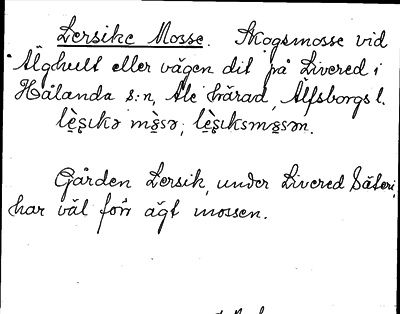 Lersike Mosse. Skogsmosse vid
Älghult eller vägen dit på Livered i
Hålanda s:n, Ale härad, Älfsborgs l.
Gården Lersik, under Livered Säteri,
har väl förr ägt mossen.